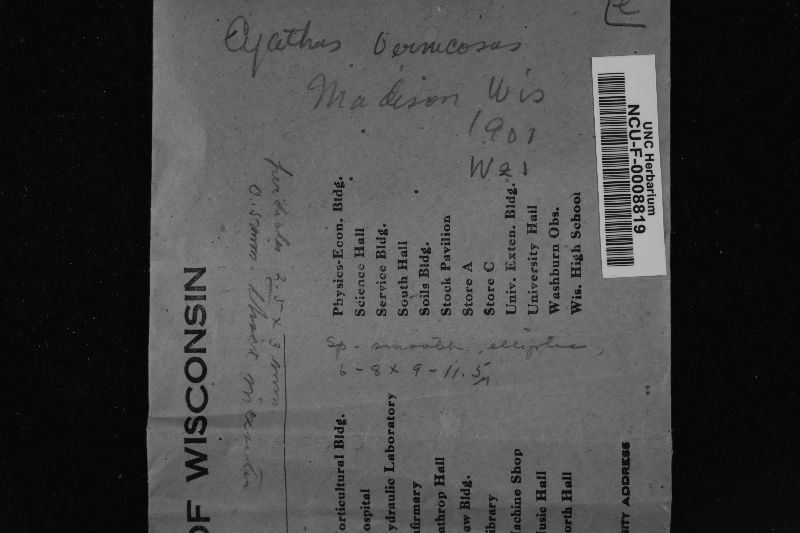 Cyathus vernicosus
Madison Wis
1901
W21
UNC Herbarium
NCU-F-0008819
Sp - smooth, elliptic,
6 - 8 x 9 - 11.5µ
2.5 x 3 mm
0.5 mm thick in center
OF WISCONSIN
Physics-Econ. Bldg.
Science Hall
Service Bldg.
South Hall
Soils Bldg.
Stock Pavilion
Store A
Store C
Univ. Exten. Bldg.
University Hall
Washburn Obs.
Wis. High School
orticultural Bldg.
ospital
ydraulic Laboratory
nfirmary
athrop Hall
aw Bldg.
ibrary
achine Shop
usic Hall
orth Hall
SITY ADDRESS